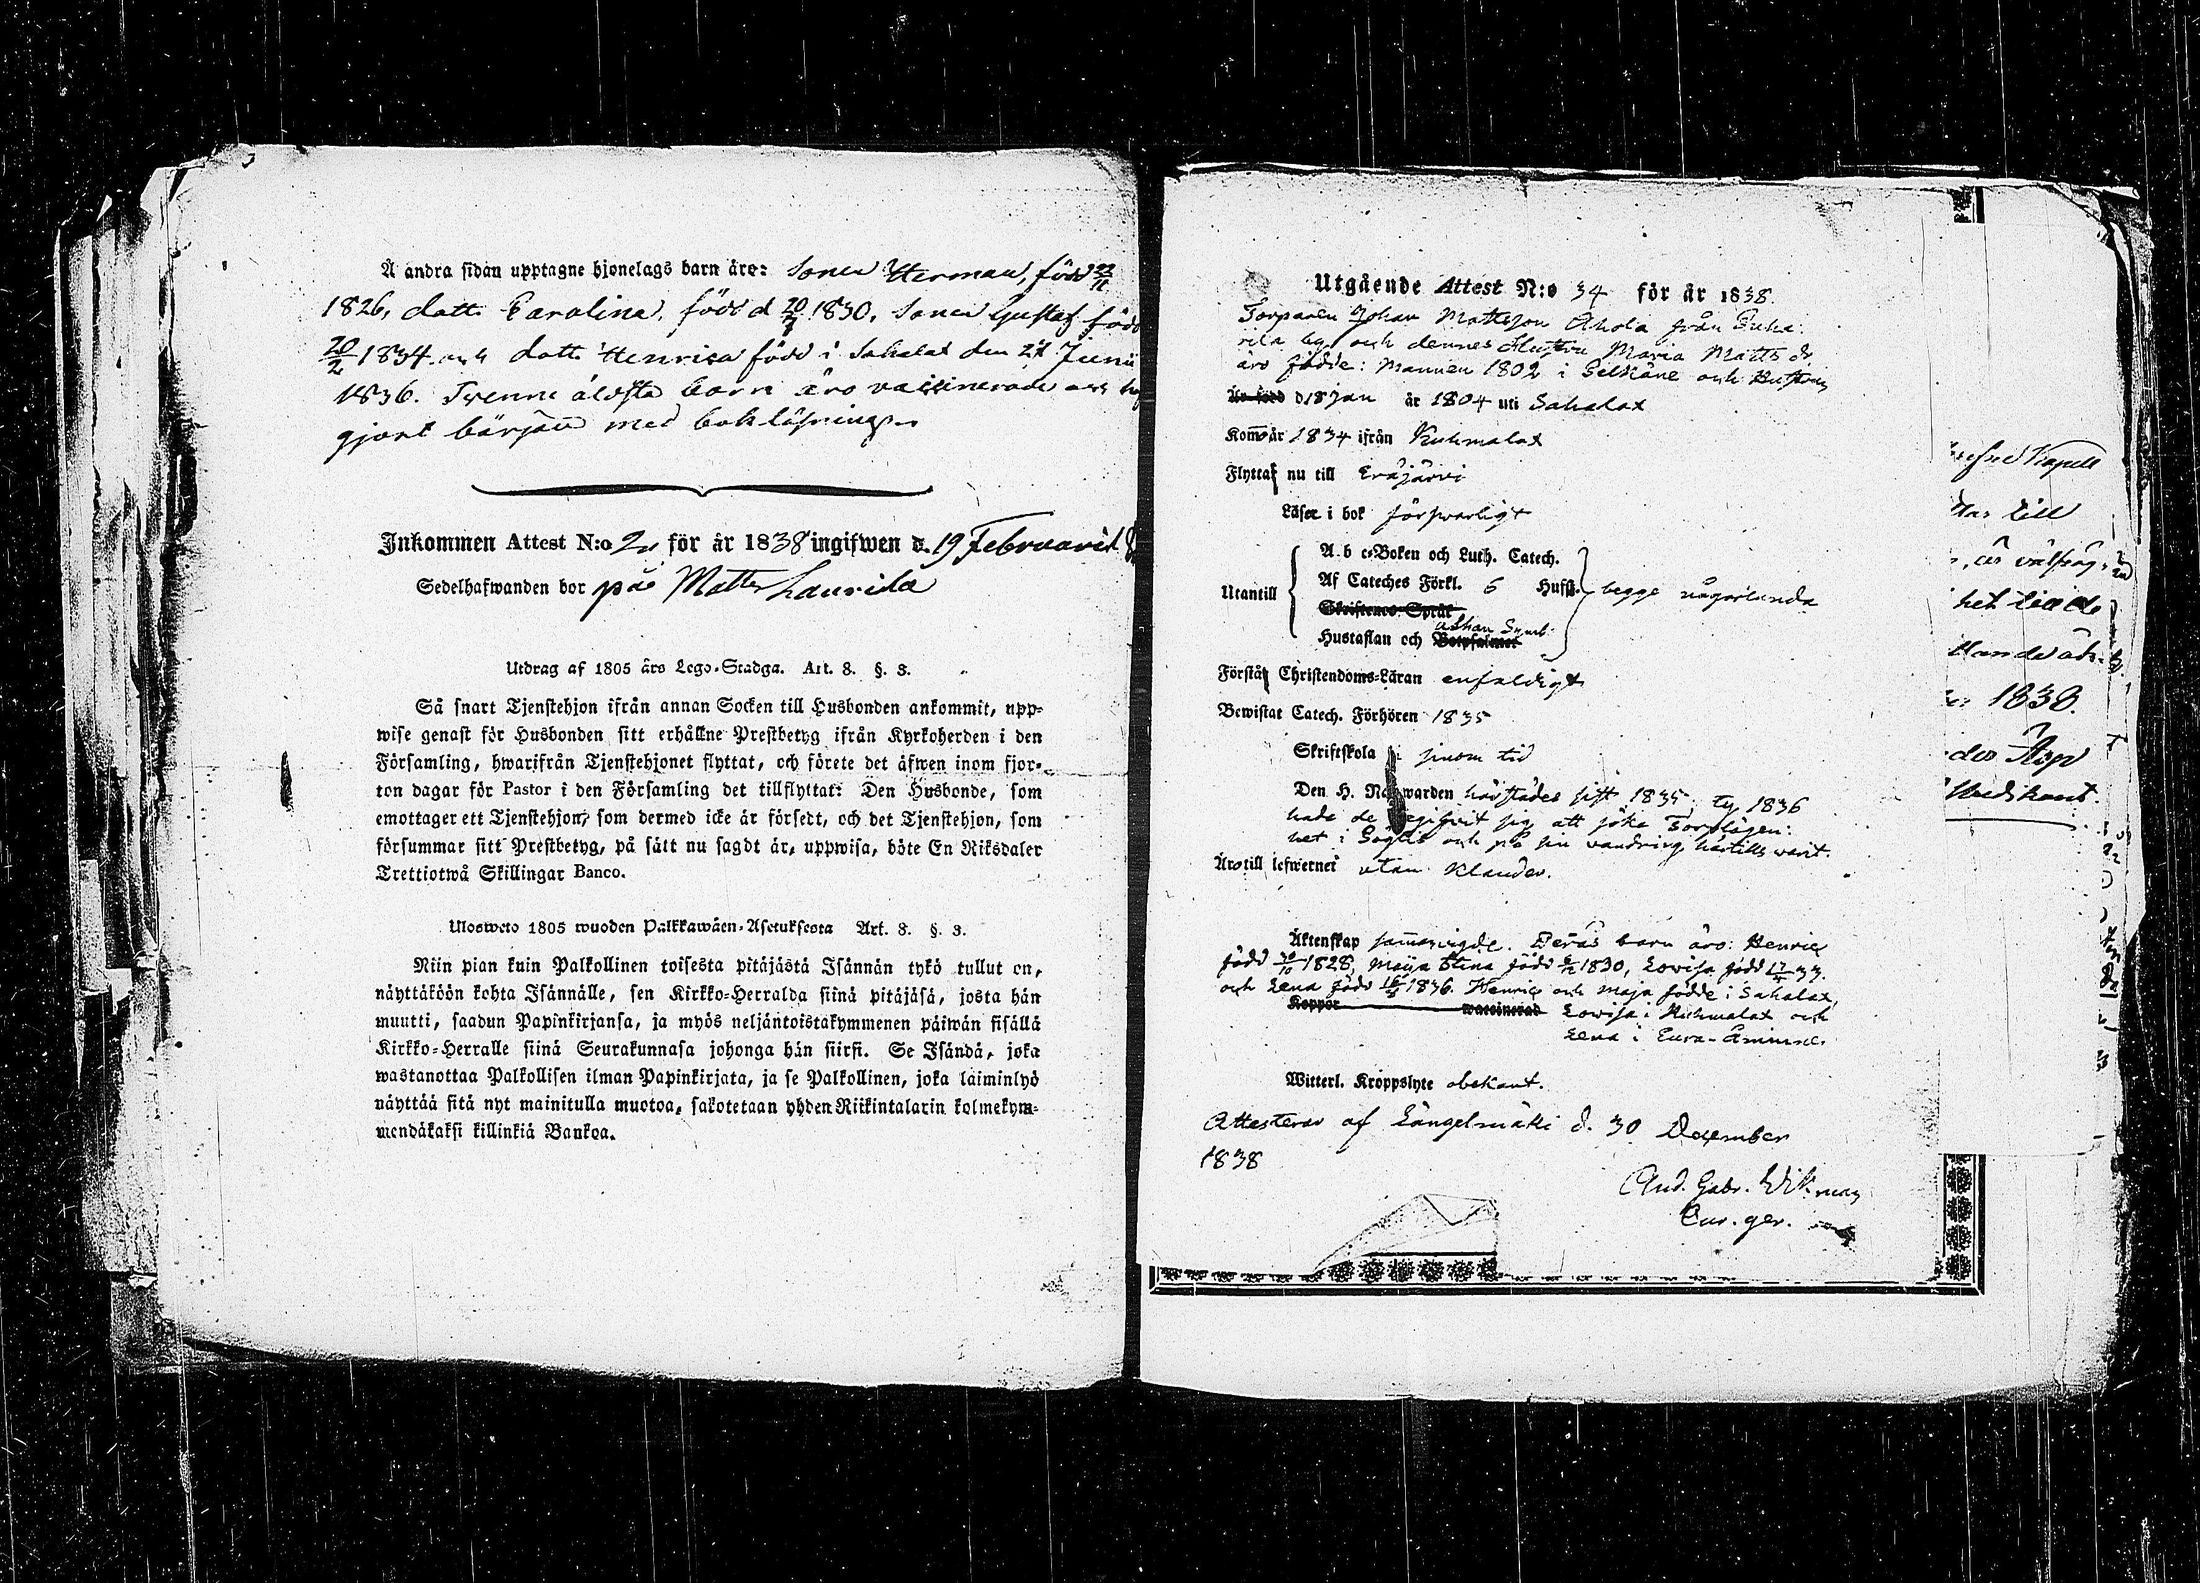 Å andra sidan upptagne hjonelags barn äro: Sonen Herman, född 22/11
1826, dottr Carolina, född d 20/7 1830, Sonen Gustaf född
20/2 1834 och dottr Henrica född i Sahalax den 27 Junii
1836. Tvenne äldsta barn äro vaccinerade och
gjort början med bokläsningen
Inkommen Attest N:o 2 för år 1838 ingifwen d. 19 Februarii
Sedelhafwanden bor på Matter Laurila
Utdrag af 1805 års Lego-Stadga. Art. 8. §. 3.
Så snart Tjenstehjon ifrån annan Socken till Husbonden ankommit, upp-
wise genast för Husbonden sitt erhållne Prestbetyg ifrån Kyrkoherden i den
Församling, hwarifrån Tjenstehjonet flyttat, och förete det äfwen inom fjor-
ton dagar för Pastor i den Församling det tillflyttat: Den Husbonde, som
emottager ett Tjenstehjon, som dermed icke är försedt, och det Tjenstehjon, som
försummar sitt Prestbetyg, på sätt nu sagdt är, uppwisa, böte En Riksdaler
Trettiotwå Skillingar Banco.
Ulosweto 1805 wuoden Palkkawäen-Asetuksesta Art. 8. §. 3.
Niin pian kuin Palkollinen toisesta pitäjästä Isännän tykö tullut on,
näyttäköön kohta Isännälle, sen Kirkko-Herralda siinä pitäjäsä, josta hän
muutti, saadun Papinkirjansa, ja myös neljäntoistakymmenen päiwän sisällä
Kirkko-Herralle siinä Seurakunnasa johonga hän siirsi. Se Isändä, joka
wastanottaa Palkollisen ilman Papinkirjata, ja se Palkollinen, joka laiminlyö
näyttää sitä nyt mainitulla muotoa, sakotetaan yhden Riikintalarin kolmekym-
mendäkaksi killinkiä Bankoa.
Utgående Attest N:o 34 för år 1838.
Torparen Johan Mattsson Ahola från
by och dennes Hustru Maria Matts dr
äro födde: Mannen 1802 i Selkäne och Hustrun
Är född d 18 Jan år 1804 uti Sahalax
Kom år 1834 ifrån Kuhmalax
Flyttar nu till Eräjärvi
Läser i bok förswarligt
A b c-Boken och Luth. Catech.
Utantill Af Cateches Förkl. 6 Hufst. begge någorlunda
Skriftenes Språk
Athan Symb.
Hustaflan och Botpsalmer
Förstår Christendoms-Läran enfaldigt
Bewistat Catech. Förhören 1835
Skriftskola i sinom tid
Den H. Nattwarden härstädes sist 1835, ty 1836
hade de begifvit sig att söka Torplägen:
het i och på sin vandring härtills varit.
Äro till lefwernet utan klander.
Äktenskap sammanvigde. Deras barn äro: Henric
född 30/10 1828, Maija Stina född 1830, Lovisa född 33
och Lena född 1836. Henric och Maja födde i Sahalax,
Koppor waccinerad Lovisa i Kuhmalax och
Lena i Eura-Åminne.
Witterl. Kroppslyte obekant.
Attesterar af Längelmäki d. 30 December
1838
And. Gabr. Wikman
Kapell
till
1838.